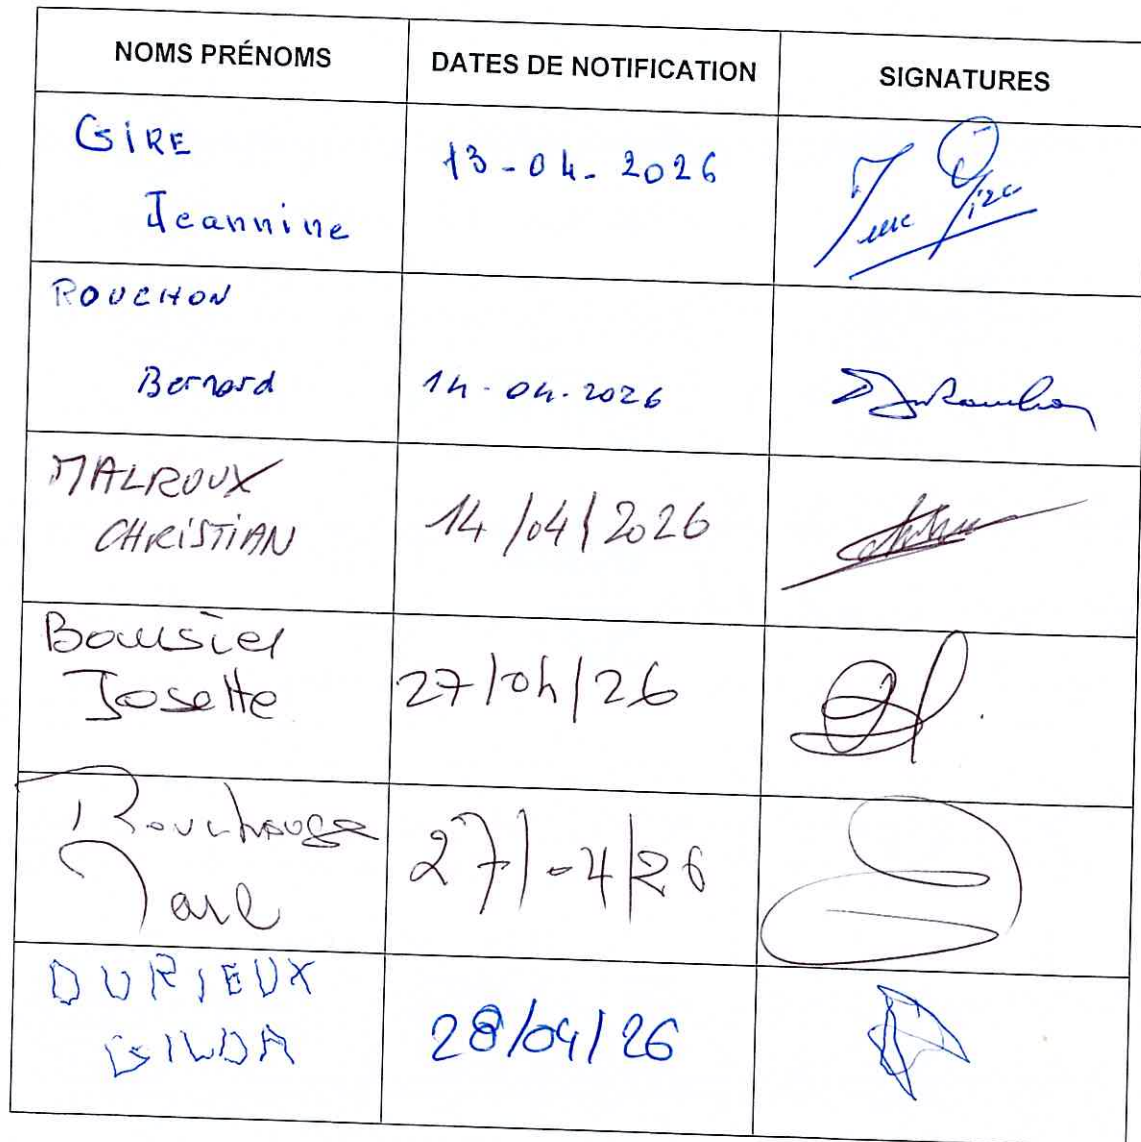 NOMS PRÉNOMS DATES DE NOTIFICATION SIGNATURES
GIRE
Jeannine 13-04-2026
ROUCHON
Bernard 14-04-2026
MALROUX
CHRISTIAN 14/04/2026
Josette 27/04/26
27/-4/26
DURIEUX
GILDA 28/04/26